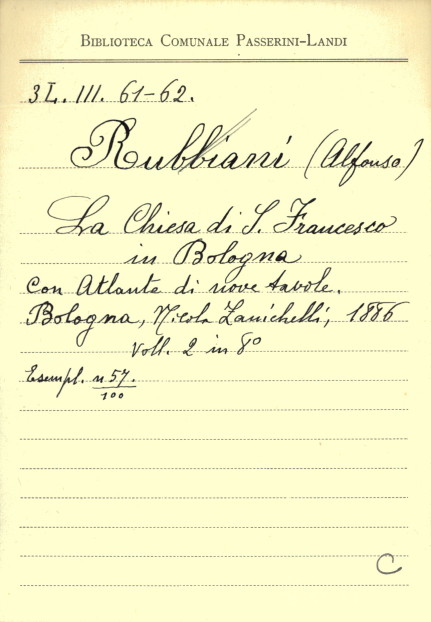 BIBLIOTECA COMUNALE PASSERINI-LANDI
3L. III. 61-62.
Rubbiani (Alfonso)
La Chiesa di S. Francesco
in Bologna
con Atlante di nove tavole.
Bologna, Nicola Zanichelli, 1886
Voll. 2 in 8º
Esempl. n 57.
100
C